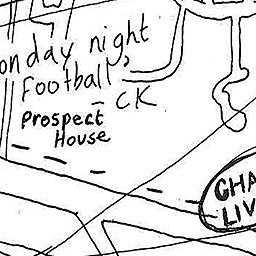 onday night
Football,
- CK
Prospect
House
CHA
LIV